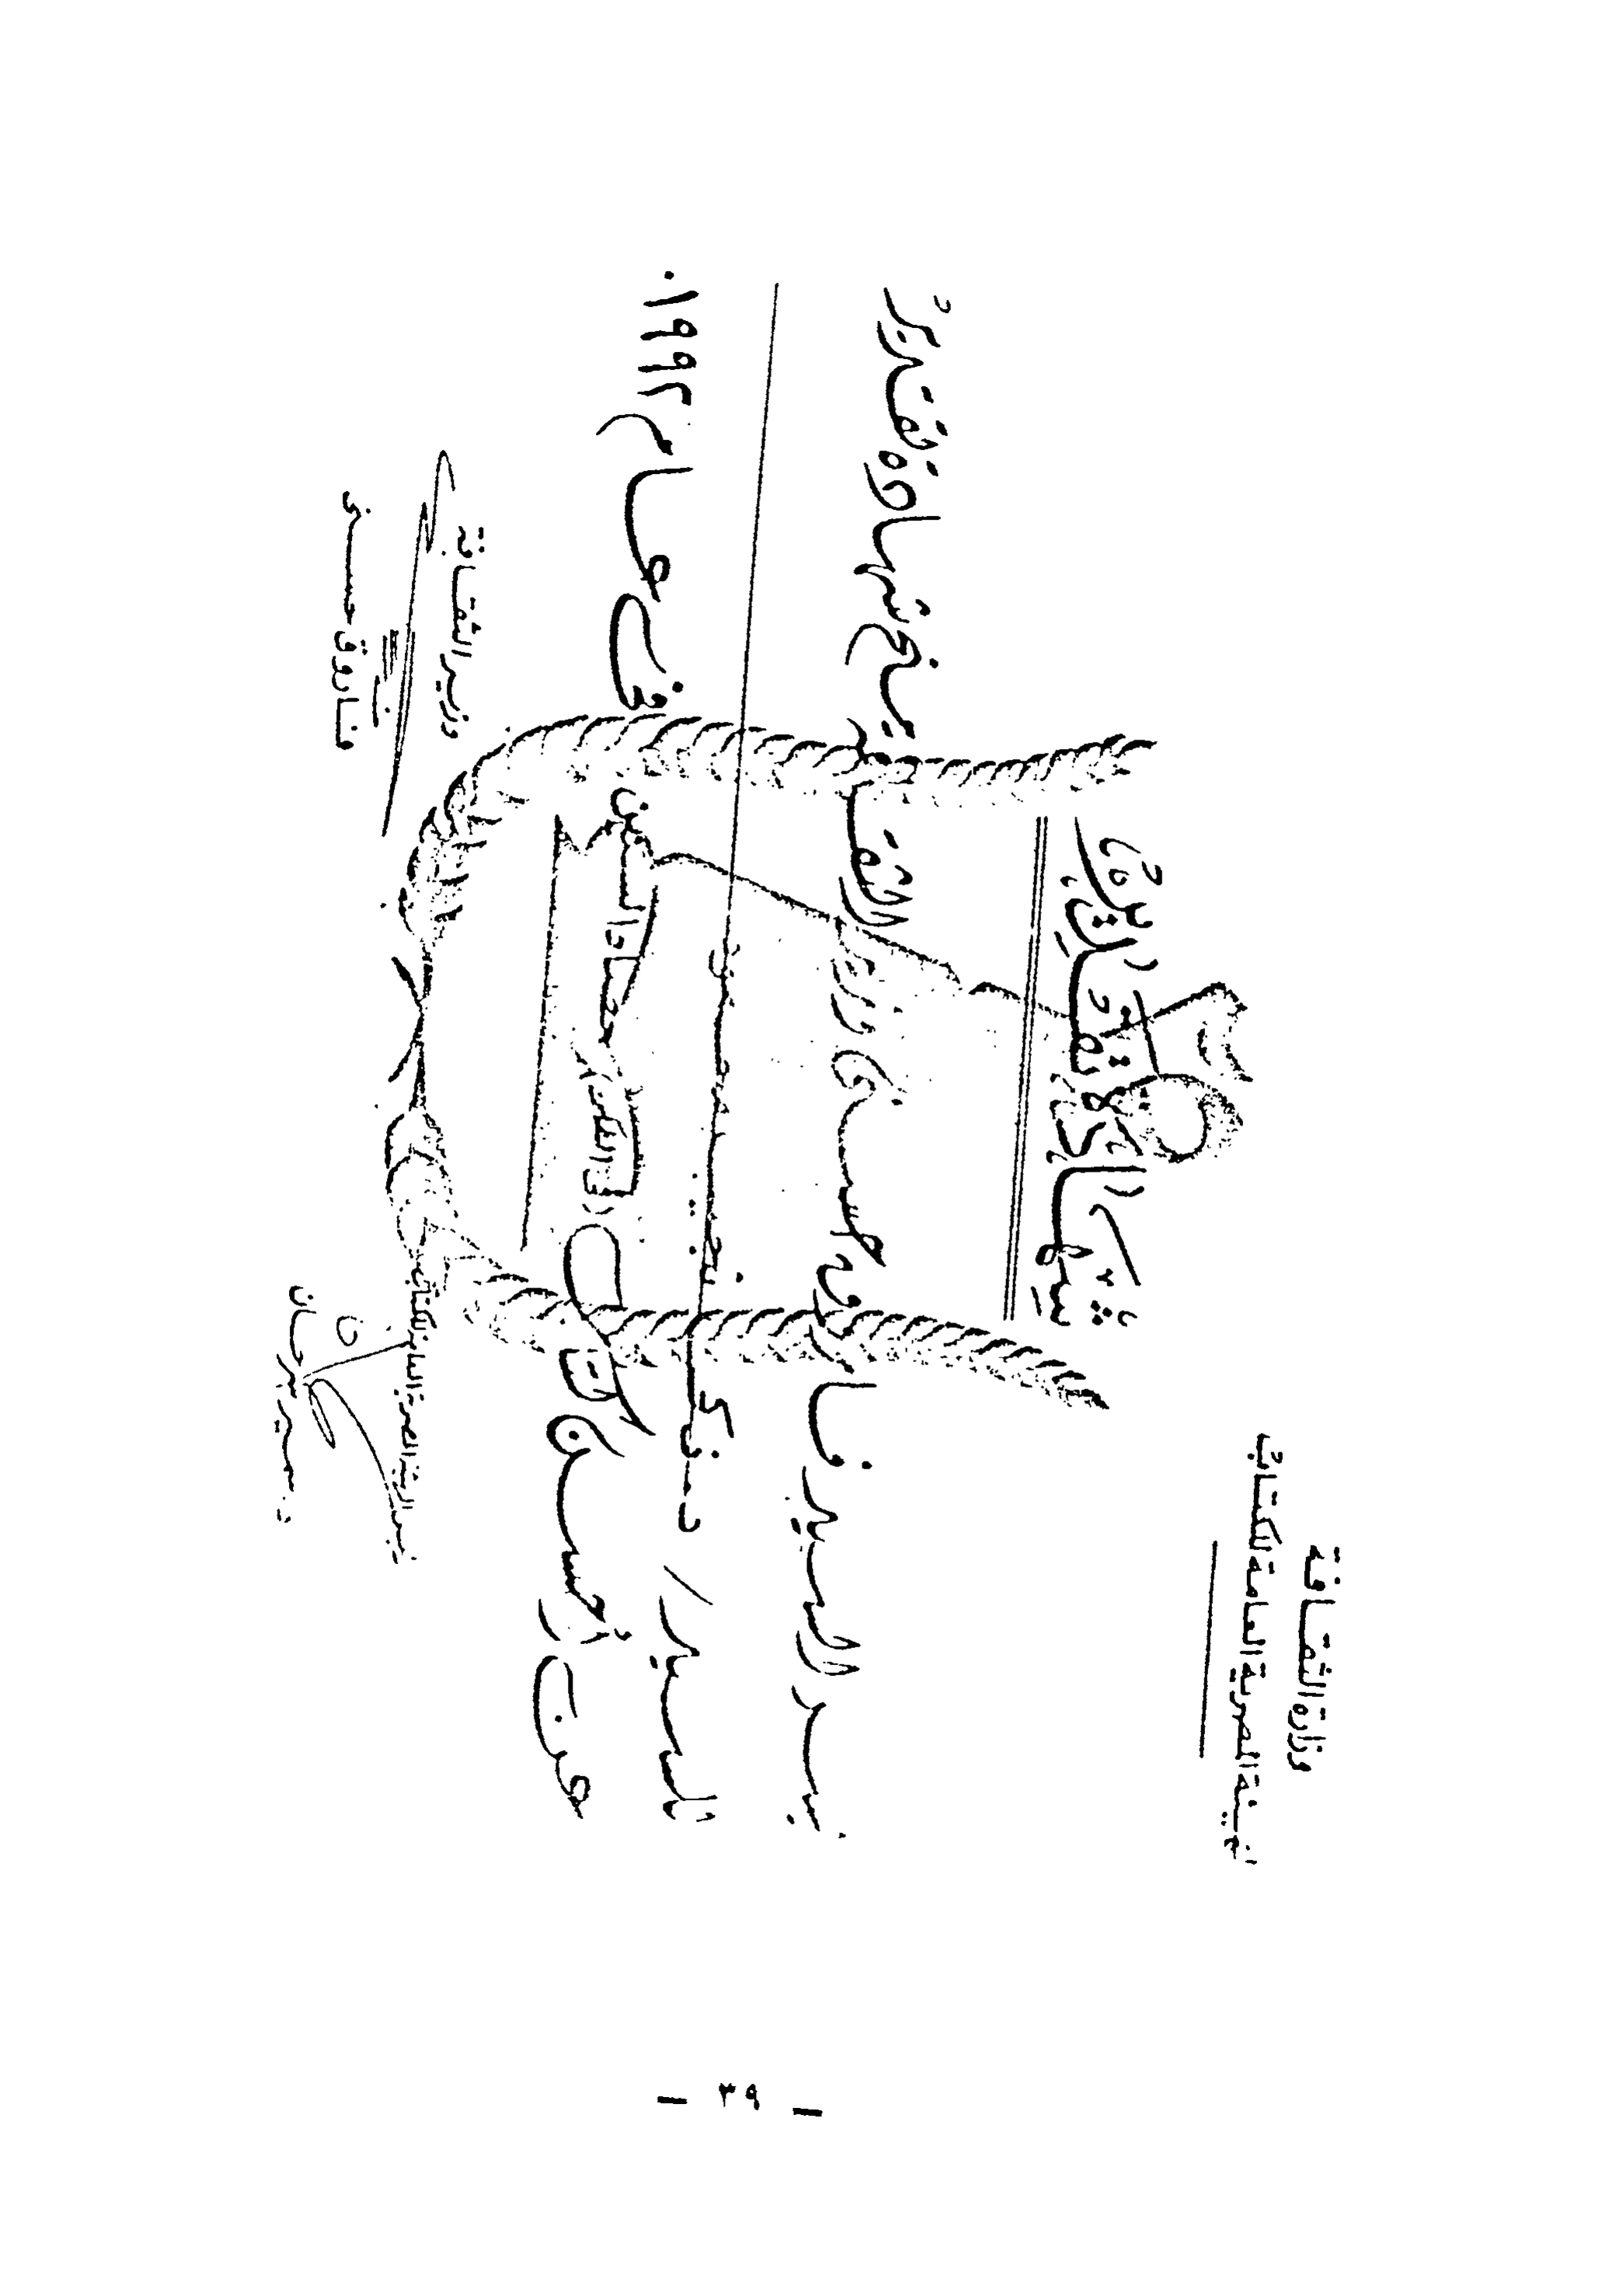 وزارة الثقافة
الهيئة المصرية العامة للكتاب
شهادة تقدير
يسر السيد فاروق حسنى وزير الثقافة منح شهادة تقدير
للسيد / د. زكى نجيب محمود
عن أحسن كتاب فى الفكر حصاد السنين فى عام ١٩٩٢.
وزير الثقافة
فاروق حسنى
رئيس الهيئة المصرية العامة للكتاب
د. سمير سرحان
— ٣٩ —